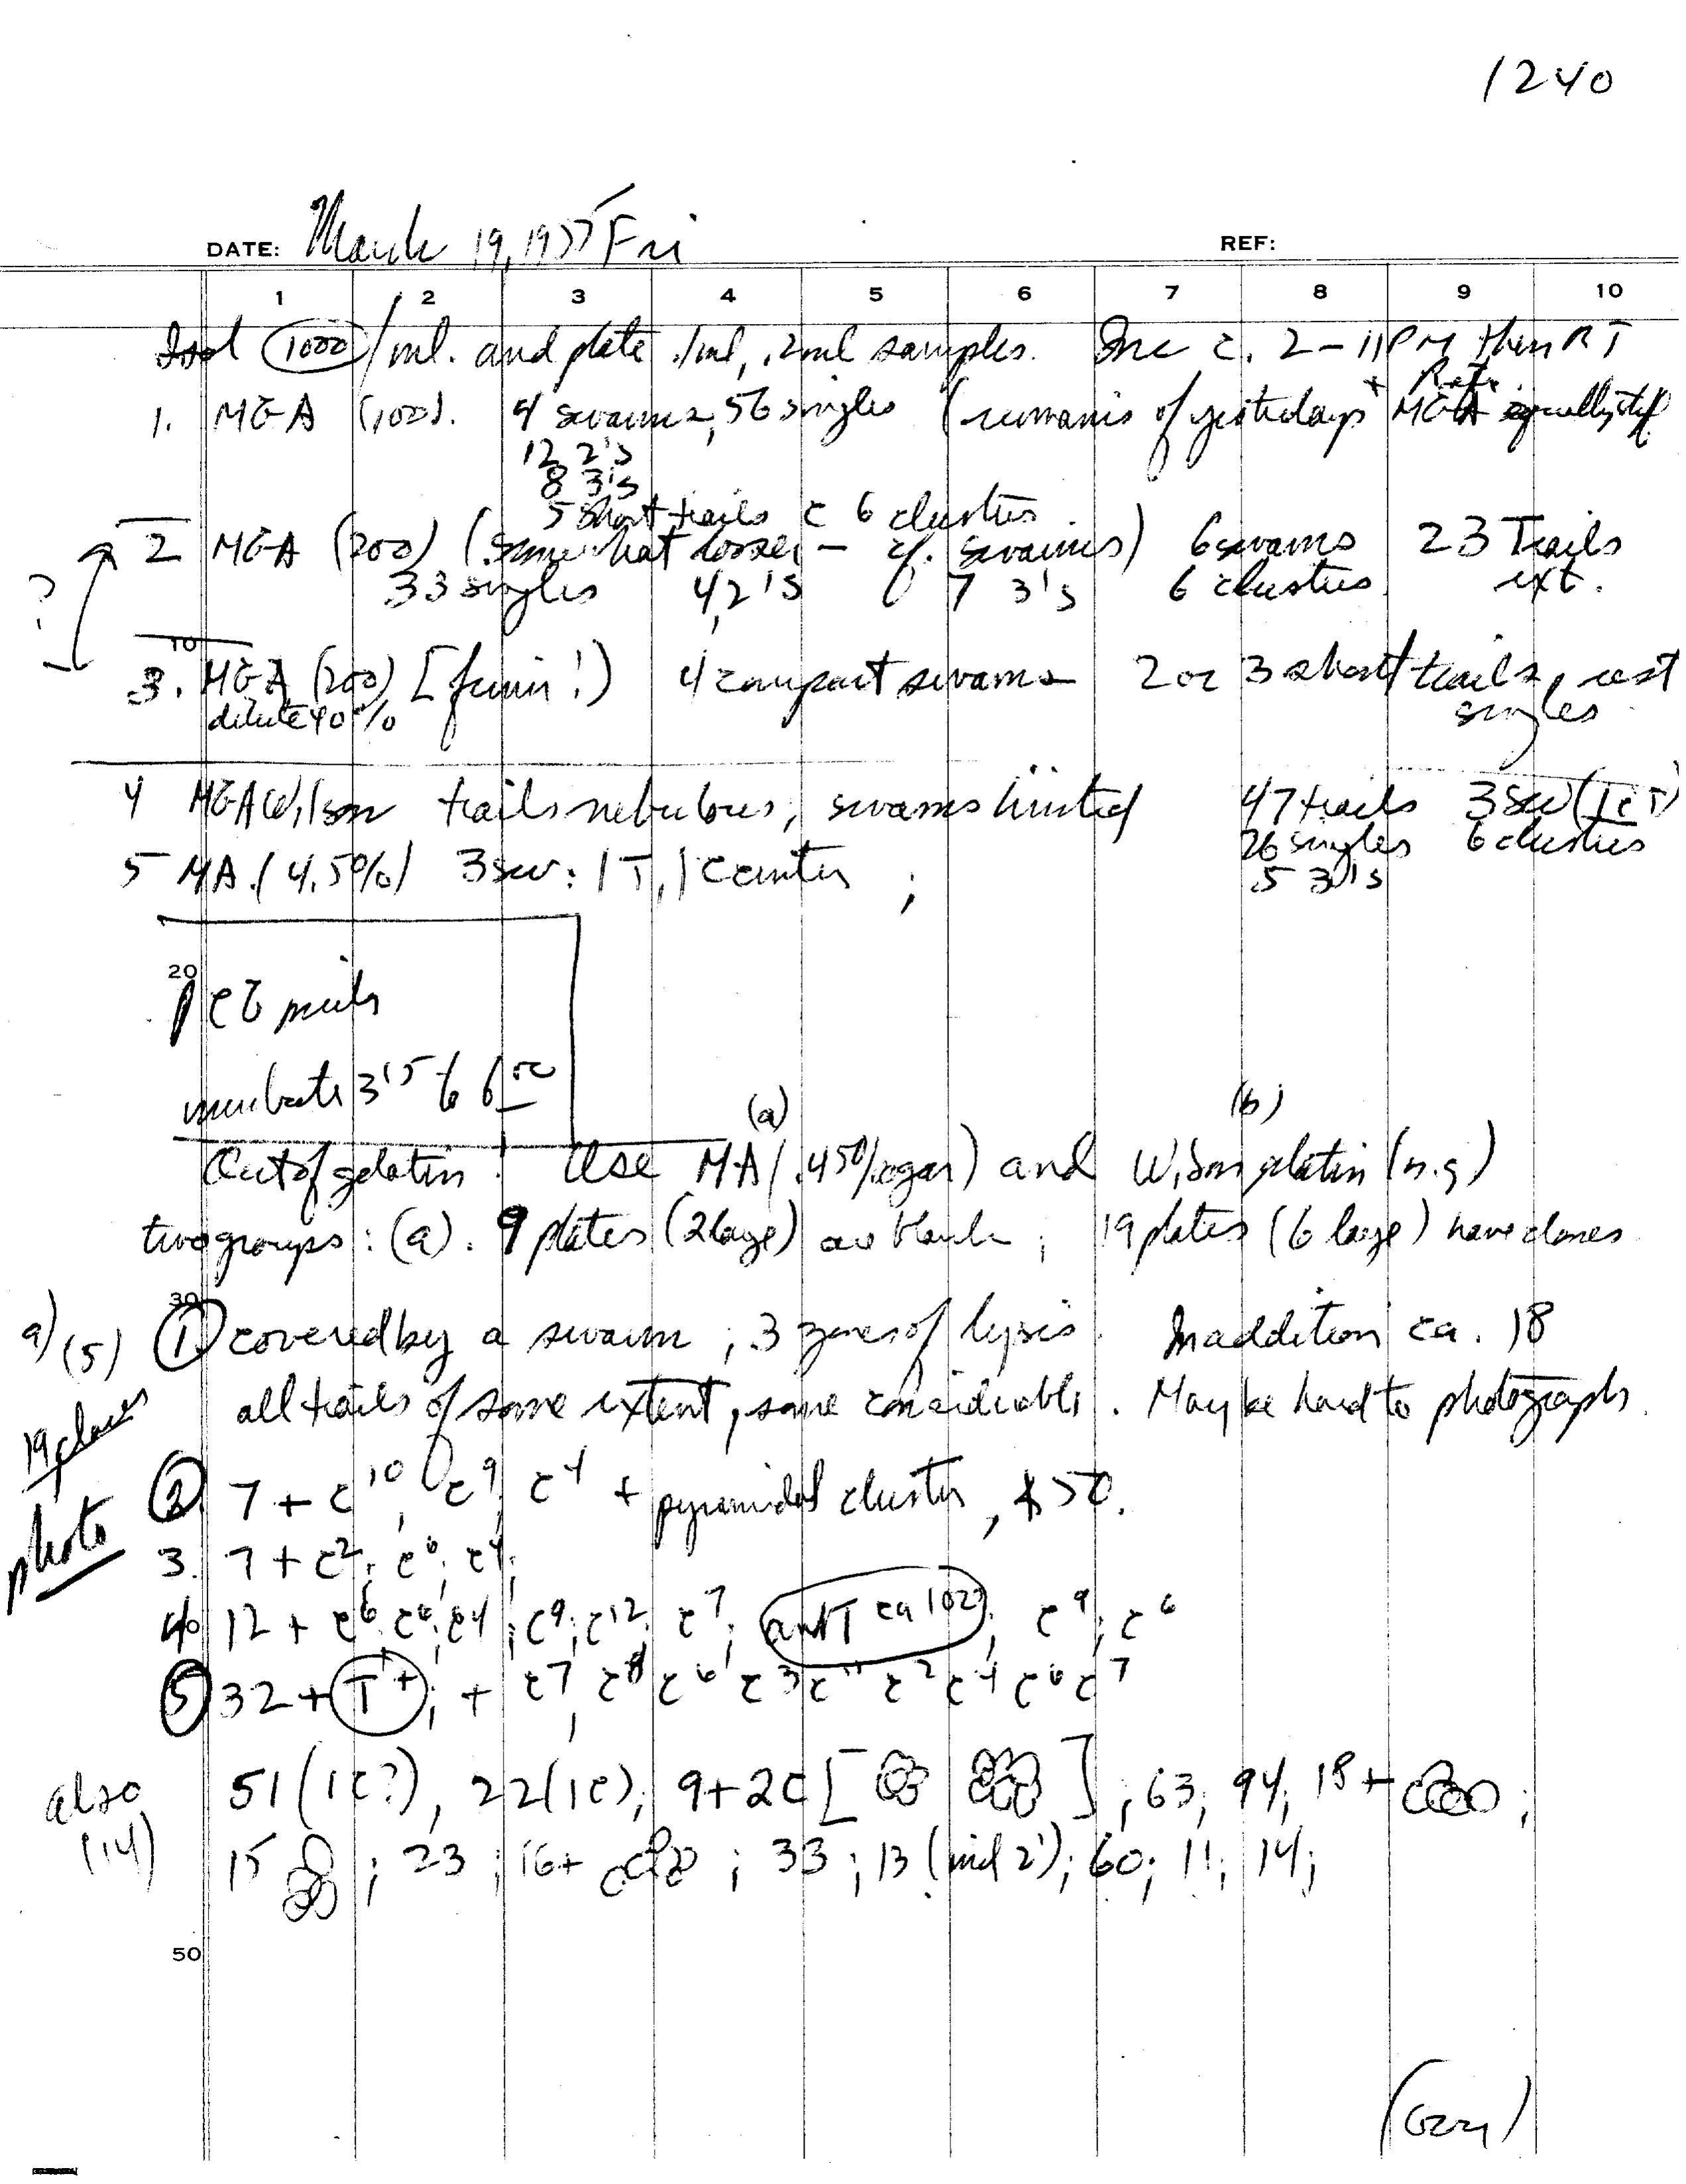 1240
DATE: March 19, 1955 Fri REF:
1 2 3 4 5 6 7 8 9 10
1000 /ml. and plate .1ml, .2ml samples. Inc c. 2-11PM then RT
Refr.
1. MGA (100). 4 swarms, 56 singles (remains of yesterdays MGA equally stiff
12 2's
8 3's
5 short trails c 6 clusters
2 MGA (200) (somewhat looser - cf. swarms) 6 swarms 23 Trails
33 singles 4, 2's 7 3's 6 clusters ext.
?
10
3. MGA (200) [firmer!) 4 compact swarms 2 or 3 short trails, rest
dilute 40% singles
4 MGA Wilson trails nebulous, swarms limited 47 trails 3 sw (1 c T)
26 singles 6 clusters
5 MA (4.5%) 3 sw: 1T, 1 c center ; 5 3's
20
incubate 3 15 to 6 00
(a) (b)
Out of gelatin! Use MA (.45% agar) and Wilson gelatin (n.g)
two groups: (a). 9 plates (2 large) are blank; 19 plates (6 large) have clones
30
a) (5) 1. covered by a swarm; 3 zones of lysis. In addition ca. 18
all trails of some extent, some considerable. May be hard to photograph.
19 plates
photo
2. 7 + c10, c9, c4 + pyramidal cluster, 50.
3. 7 + c2; c6; c4;
4. 12 + c6 c6; c4; c9; c12; c7; ca 102; c9; c6
5 32 + T+; + c7, c8 c6 c3 c11 c2 c4 c6 c7
also 51 (1c?), 22 (1c), 9+2c [ ]; 63; 94; 18+ ;
(14) 15 ; 23; 16+ ; 33; 13 (incl 2'); 60; 11; 14;
50
(over)